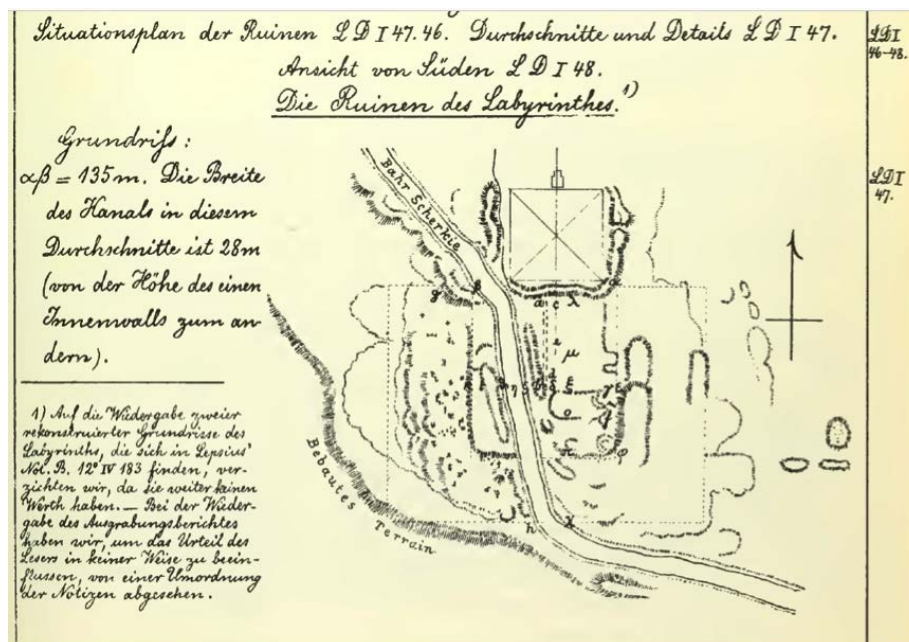 Situationsplan der Ruinen LD I 47. 46. Durchschnitte und Details LD I 47.
Ansicht von Süden LD I 48.
Die Ruinen des Labyrinthes.¹)
LDI
46-48.
Grundriſs:
αβ = 135m. Die Breite
des Kanals in diesem
Durchschnitte ist 28m
(von der Höhe des einen
Innenwalls zum an-
dern).
LDI
47.
1) Auf die Wiedergabe zweier
rekonstruierter Grundrisse des
Labyrinths, die sich in Lepsius'
Not. B. 12° IV 183 finden, ver-
zichten wir, da sie weiter keinen
Werth haben. — Bei der Wieder-
gabe des Ausgrabungsberichtes
haben wir, um das Urteil des
Lesers in keiner Weise zu beein-
flussen, von einer Umordnung
der Notizen abgesehen.
Bahr Scherkie
g
a c λ
μ
h
χ
Bebautes Terrain